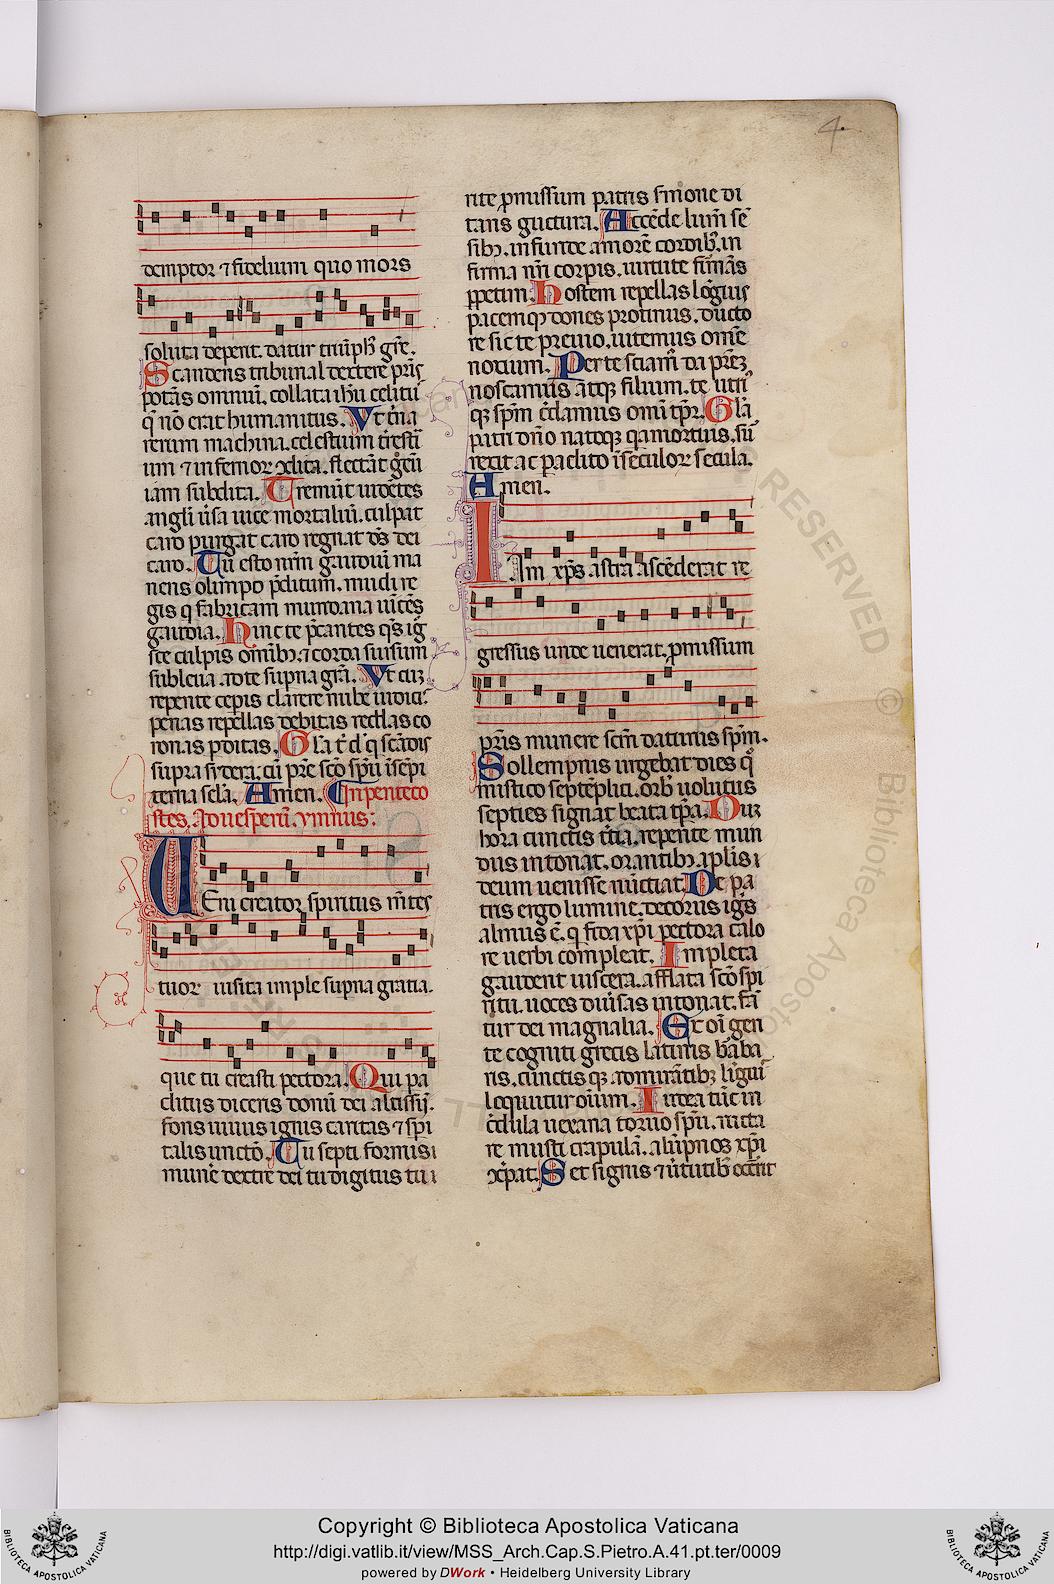 4.
demptor ⁊ fidelium quo mors
soluta deperit. datur triũph᷒ gr̃e.
Scandens tribunal dextere pr̃is
potãs omniũ. collata ihũ celitũ
q̃ nõ erat humanitus. Vt t̃na
rerum machina. celestium t̃restĩ
um ⁊ infernoꝝ ꝯdita. flectãt gẽu
iam subdita. Tremũt uidẽtes
angli ũsa uice mortaliũ. culpat
caro purgat caro regnat dš dei
caro. Tu esto nr̃m gaudiũ ma
nens olimpo p̃ditum. mũdi re
gis q̃ fabricam mundana uĩcẽs
gaudia. Hinc te p̃cantes q̃s. ig̃
sce culpis omĩbꝫ. ⁊ corda sursum
subleua. ad te supna gr̃a. Vt cuꝫ
repente cepis clarere nube iudicĩ
penas repellas debitas reddas co
ronas pditas. Gl̃a t̃ dñ q scãdis
supra sydera. cũ pr̃e sc̃o spũ ĩ sẽpi
terna sc̃la. Amen. In penteco
stes. Ad uesperũ. ymnus.
UEni creator spiritus mẽtes
tuoꝝ uisita imple supna gratia.
que tu creasti pectora. Qui pa
clitus diceris donũ dei altissĩ.
fons uiuus ignis caritas ⁊ spi
talis unctõ. Tu septi formis
munẽ dextre dei tu digitus tu
rite pmissum patris smone di
tans guctura. Accẽde lum̃ sẽ
sibꝫ. infunde amorẽ cordibꝫ. in
firma nr̃i corpis. uirtute firmãs
ppetim. Hostem repellas lõgius
pacemqꝫ dones protinus. ducto
re sic te preuio. uitemus omẽ
noxium. Per te sciam᷒ da pr̃eꝫ
noscamus atqꝫ filium. te utriꝰ
qꝫ spm̃ c̃damus omĩ tp̃r. Gl̃a
patri dño natoqꝫ q a mortuis. sũ
rexit ac paclito ĩ seculoꝝ secula.
Amen.
IAm xp̃s astra ascẽderat re
gressus unde uenerat. pmissum
pr̃is munere sc̃m daturus spm̃.
Sollempnis urgebat dies q̃
mistico septẽplici. orb᷒ uolutus
septies signat beata tp̃a. Duꝫ
hora cunctis t̃tia. repente mun
dus intonat. orantibꝫ apl̃is
deum uenisse nũtiat. De pa
tris ergo lumine. decorus igñs
almus ẽ. q fida xp̃i pectora calo
re uerbi compleat. Impleta
gaudent uiscera. afflata sc̃o spi
ritu. uoces diũsas intonat. fã
tur dei magnalia. Ex oĩ gen
te cogniti grecis latinis barba
ris. cunctis qꝫ admirãtibꝫ lĩguĩ
loquitur oĩum. Iudea tũc in
c̃dula uexana toruo spũ. ructa
re musti crapulã. alũpnos xp̃i
ꝯcpat. Set signis ⁊ uĩtutibꝫ occĩrit
Copyright © Biblioteca Apostolica Vaticana
http://digi.vatlib.it/view/MSS_Arch.Cap.S.Pietro.A.41.pt.ter/0009
powered by DWork • Heidelberg University Library
BIBLIOTECA APOSTOLICA VATICANA
BIBLIOTECA APOSTOLICA VATICANA